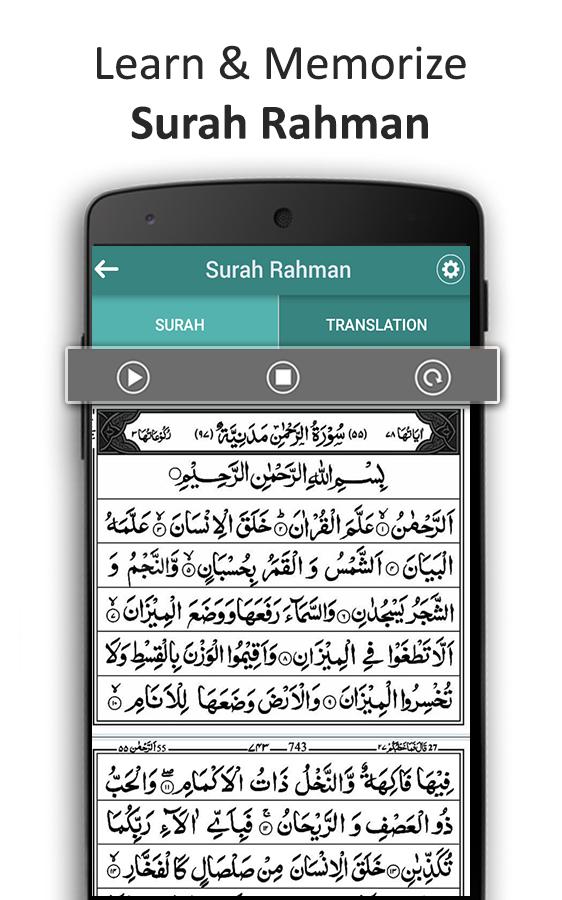 Learn & Memorize
Surah Rahman
Surah Rahman
SURAH
TRANSLATION
اٰیَاتُهَا ۷۸ (۵۵) سُوْرَةُ الرَّحْمٰنِ مَدَنِيَّةٌ (۹۷) رُكُوْعَاتُهَا ۳
بِسْمِ اللهِ الرَّحْمٰنِ الرَّحِيْمِ
اَلرَّحْمٰنُ ۙ۱ عَلَّمَ الْقُرْاٰنَ ؕ۲ خَلَقَ الْاِنْسَانَ ۙ۳ عَلَّمَهُ
الْبَيَانَ ۴ اَلشَّمْسُ وَ الْقَمَرُ بِحُسْبَانٍ ۪۵ وَّالنَّجْمُ وَ
الشَّجَرُ يَسْجُدٰنِ ۶ وَالسَّمَآءَ رَفَعَهَا وَوَضَعَ الْمِيْزَانَ ۙ۷
اَلَّا تَطْغَوْا فِي الْمِيْزَانِ ۸ وَاَقِيْمُوا الْوَزْنَ بِالْقِسْطِ وَلَا
تُخْسِرُوا الْمِيْزَانَ ۹ وَالْاَرْضَ وَضَعَهَا لِلْاَنَامِ ۙ۱۰
اَلرَّحْمٰن ۵۵ 55 ۷۴۳ 743 قَالَ فَمَا خَطْبُكُمْ ۲۷ 27
فِيْهَا فَاكِهَةٌ وَّالنَّخْلُ ذَاتُ الْاَكْمَامِ ۖ۱۱ وَالْحَبُّ
ذُو الْعَصْفِ وَ الرَّيْحَانُ ۚ۱۲ فَبِاَيِّ اٰلَآءِ رَبِّكُمَا
تُكَذِّبٰنِ ۱۳ خَلَقَ الْاِنْسَانَ مِنْ صَلْصَالٍ كَالْفَخَّارِ ۙ۱۴